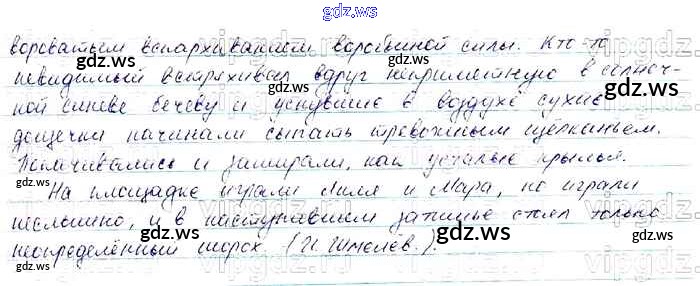 gdz.ws
вороватым вспархиванием воробьиной силы. Кто-то
невидимый встряхивал вдруг неприметную в солнеч-
ной синеве бечеву и уснувшие в воздухе сухие
дощечки начинали сыпать тревожным щёлканьем.
Помчивались и замирали, как усталые крылья.
На площадке играли Ляля и Мара, но играли
неслышно, и в наступившем затишье стоял только
неопределённый шорох. (И Шмелев.).